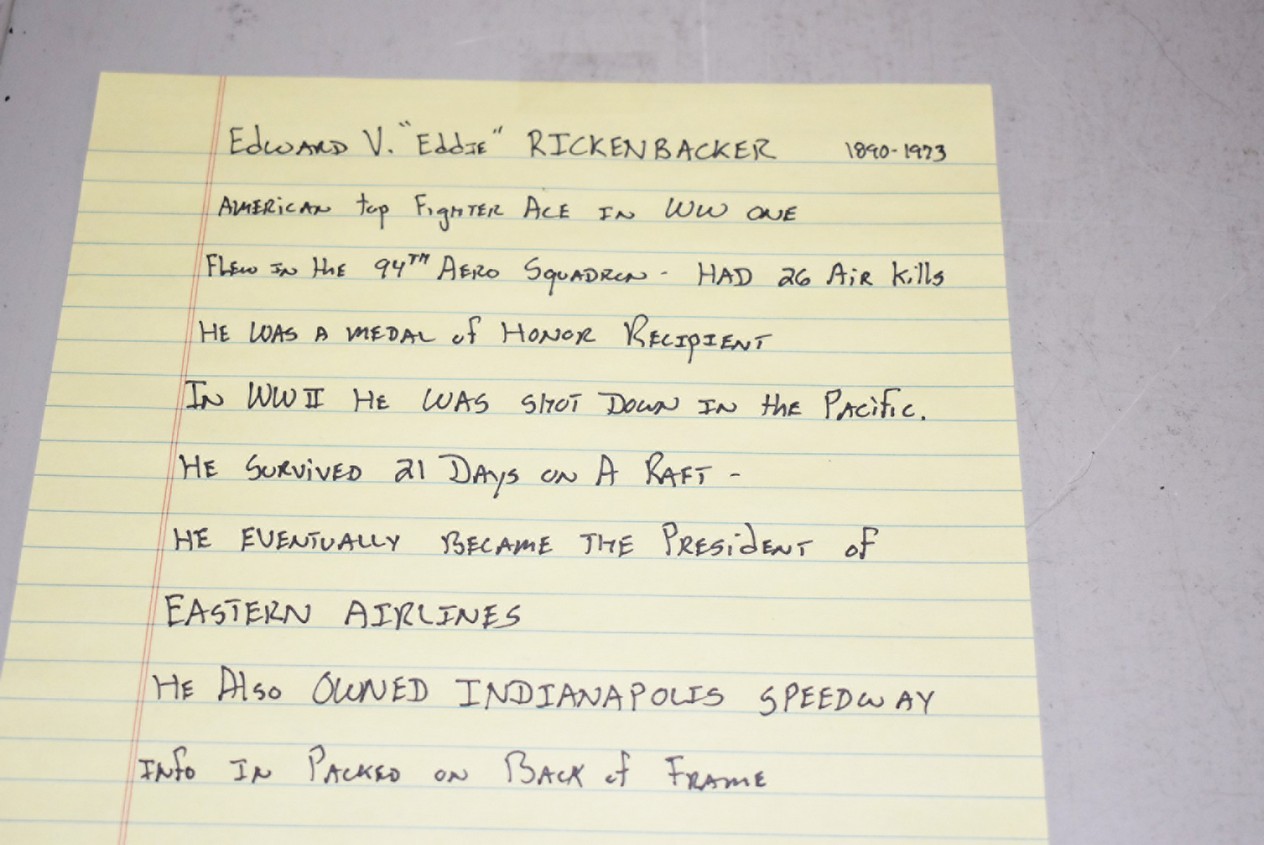 Edward V. "Eddie" RICKENBACKER 1890-1973
AMERICAN top Fighter Ace in WW ONE
Flew in the 94TH Aero Squadron - HAD 26 Air kills
HE WAS A MEDAL of HONOR RECIPIENT
In WWII HE WAS SHOT DOWN IN the Pacific.
HE SURVIVED 21 Days on A RAFT -
HE EVENTUALLY BECAME THE PRESIDENT of
EASTERN AIRLINES
HE Also OWNED INDIANAPOLIS SPEEDWAY
INfo IN PACKED ON BACK of FRAME